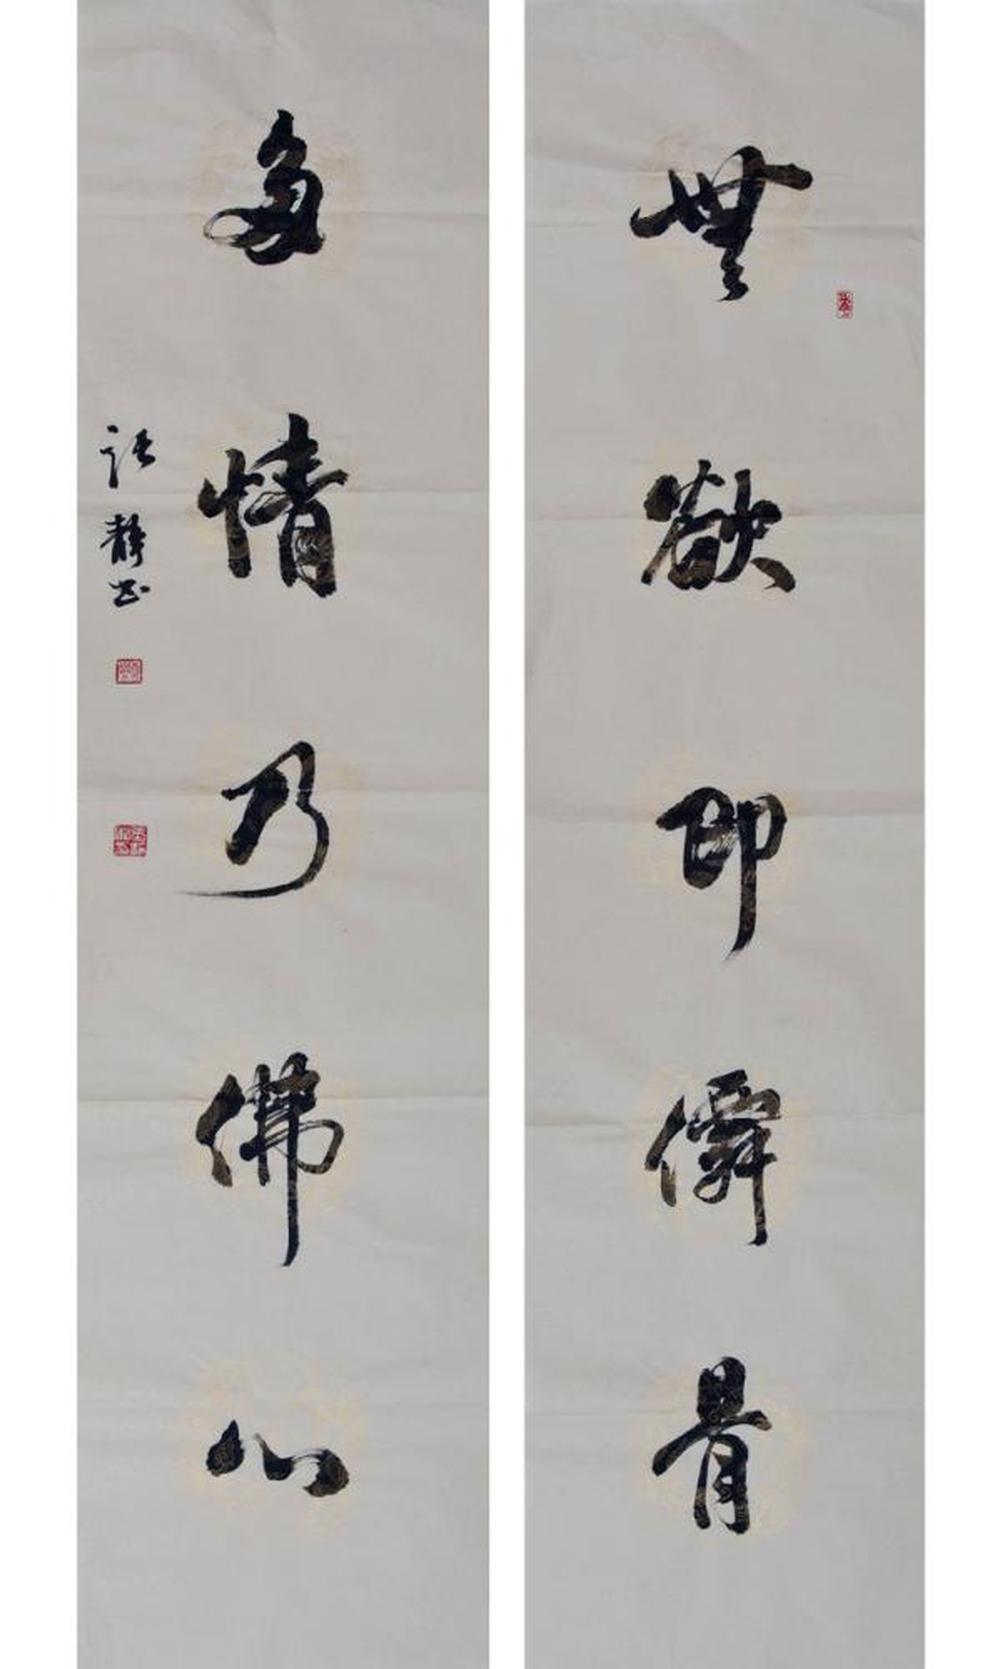 無欲即僊骨
多情乃佛心
靜書